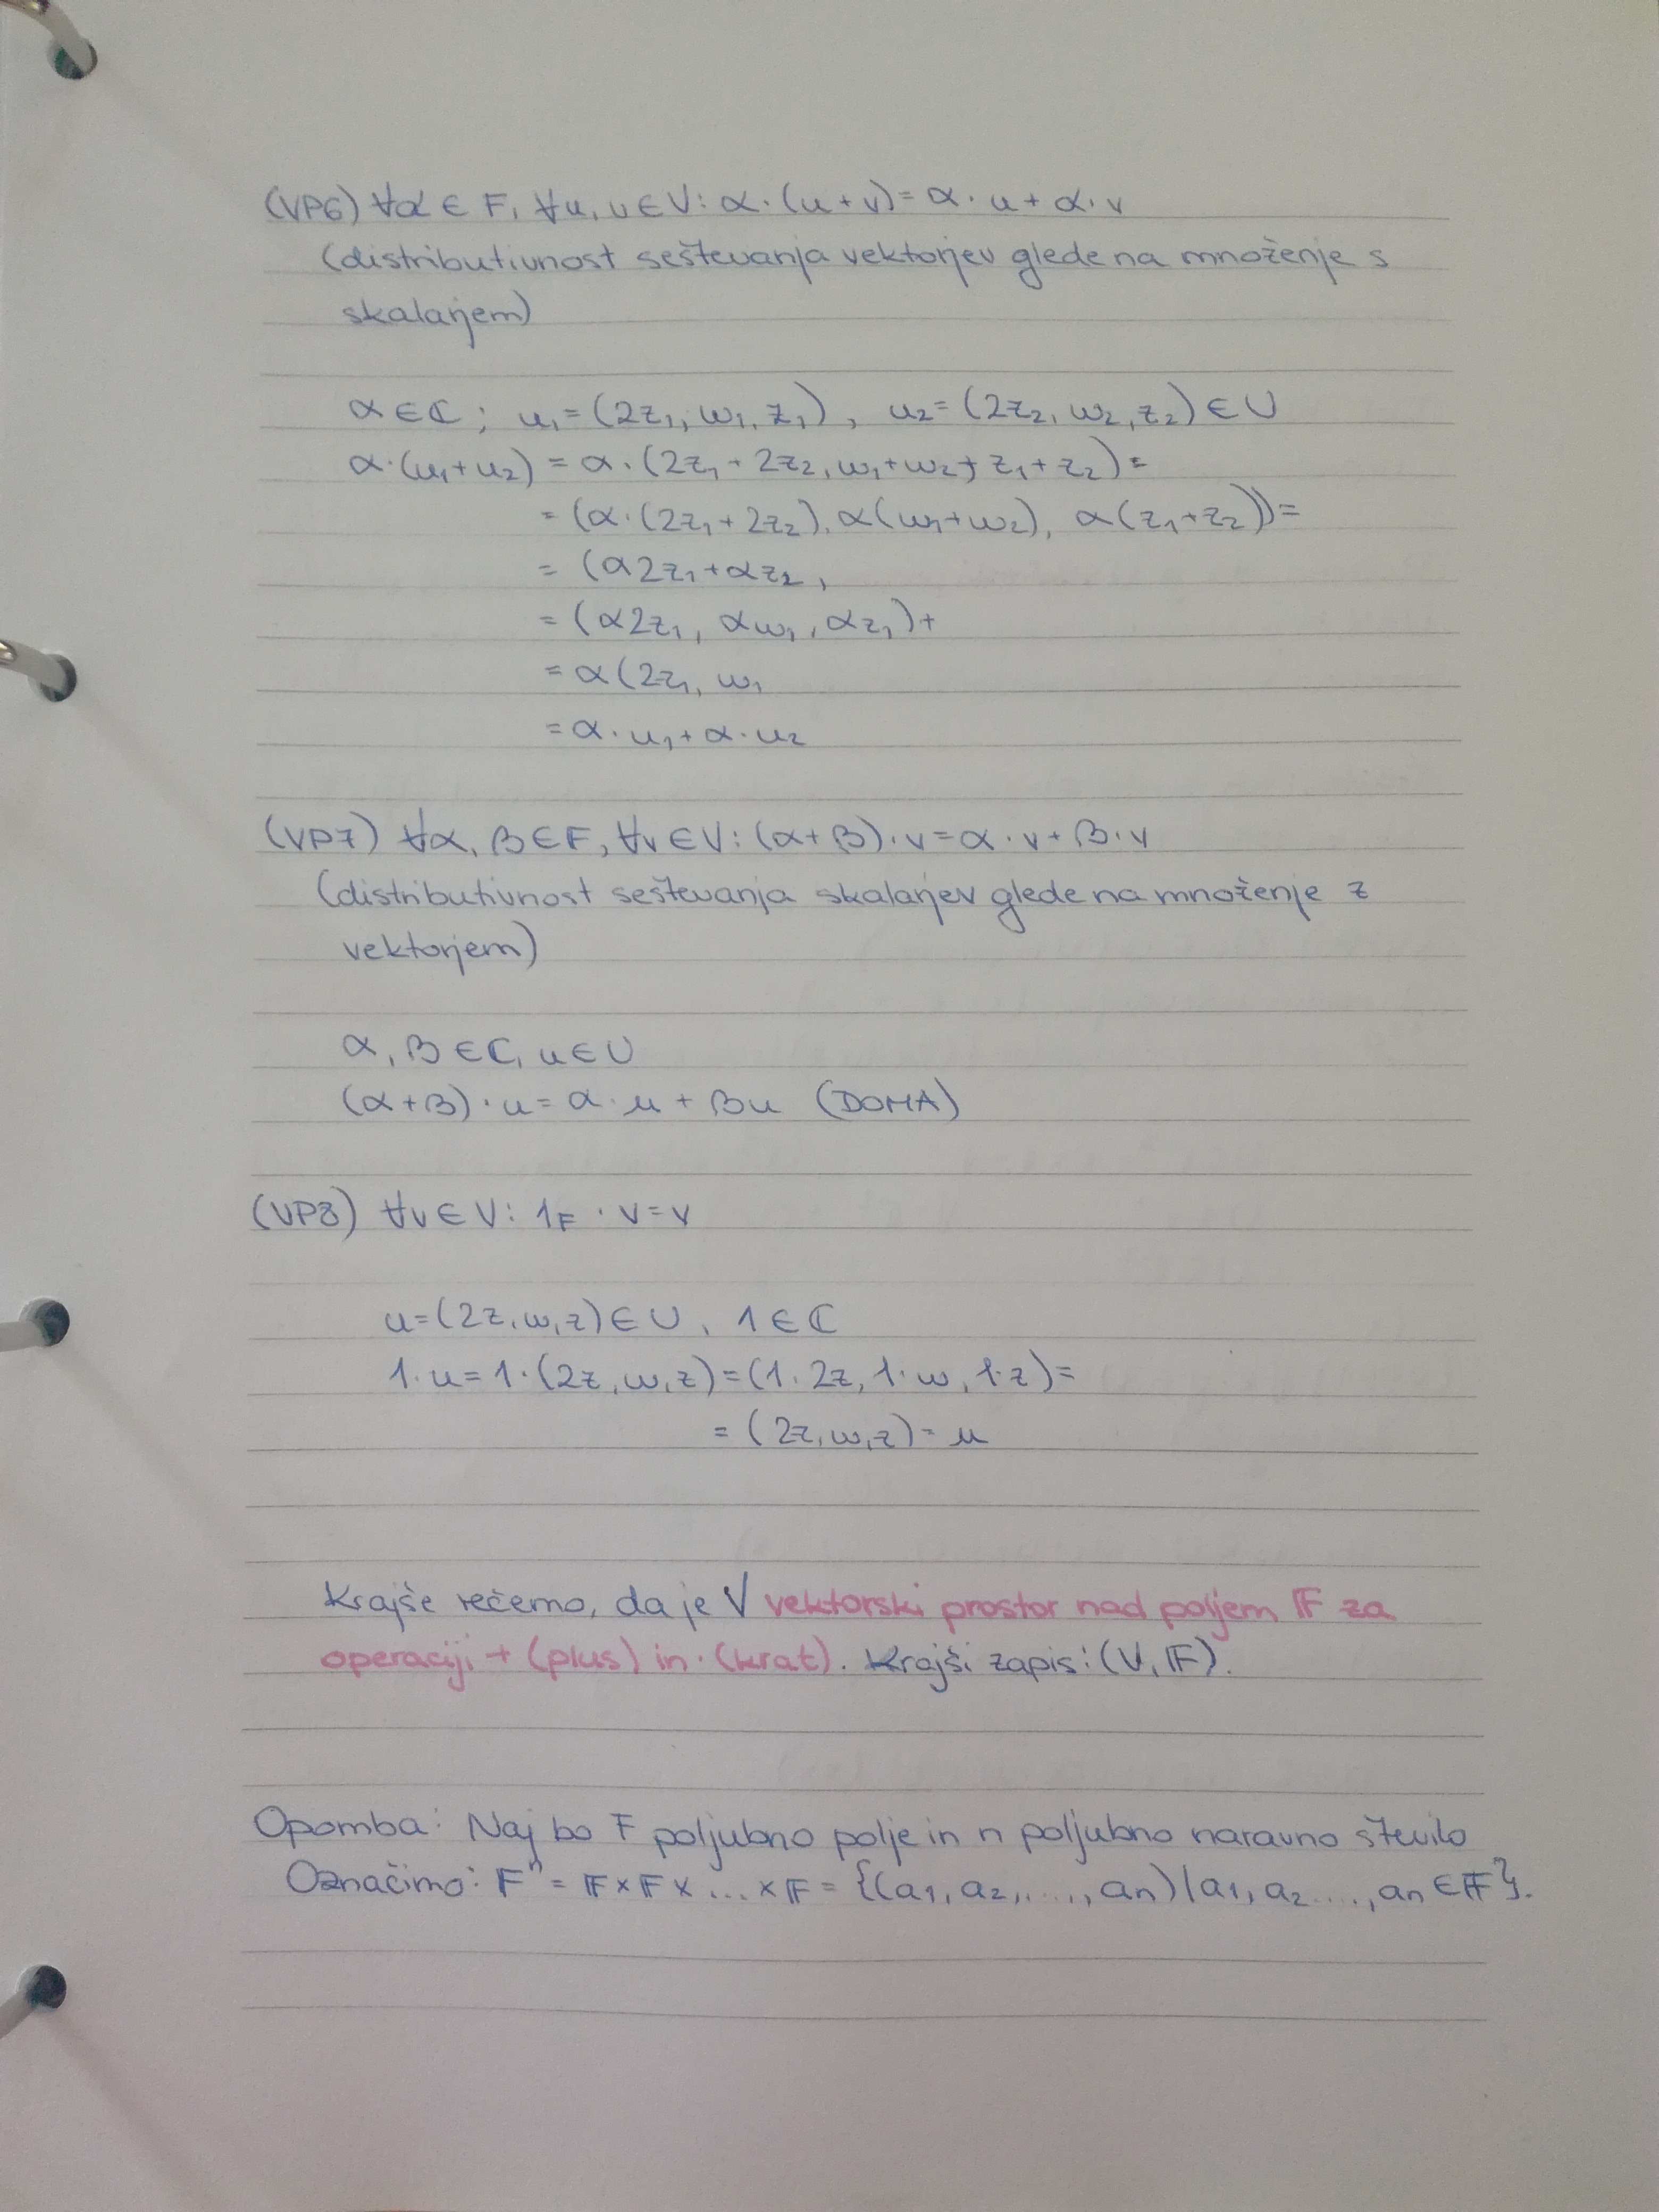 (VP6) ∀α ∈ F, ∀u, v ∈ V: α · (u + v) = α · u + α · v
(distributivnost seštevanja vektorjev glede na množenje s
skalarjem)
α ∈ ℂ; u₁ = (2z₁, w₁, z₁), u₂ = (2z₂, w₂, z₂) ∈ U
α · (u₁ + u₂) = α · (2z₁ + 2z₂, w₁ + w₂, z₁ + z₂) =
= (α · (2z₁ + 2z₂), α(w₁ + w₂), α(z₁ + z₂)) =
= (α2z₁ + αz₂,
= (α2z₁, αw₁, αz₁) +
= α(2z₁, w₁
= α · u₁ + α · u₂
(VP7) ∀α, β ∈ F, ∀v ∈ V: (α + β) · v = α · v + β · v
(distributivnost seštevanja skalarjev glede na množenje z
vektorjem)
α, β ∈ ℂ, u ∈ U
(α + β) · u = α · u + βu (DOMA)
(VP8) ∀v ∈ V: 1F · v = v
u = (2z, w, z) ∈ U, 1 ∈ ℂ
1 · u = 1 · (2z, w, z) = (1 · 2z, 1 · w, 1 · z) =
= (2z, w, z) = u
Krajše rečemo, da je V vektorski prostor nad poljem 𝔽 za
operaciji + (plus) in · (krat). Krajši zapis: (V, 𝔽).
Opomba: Naj bo F poljubno polje in n poljubno naravno število
Označimo: 𝔽ⁿ = 𝔽 × 𝔽 × ... × 𝔽 = {(a₁, a₂, ..., an) | a₁, a₂ ..., an ∈ 𝔽}.